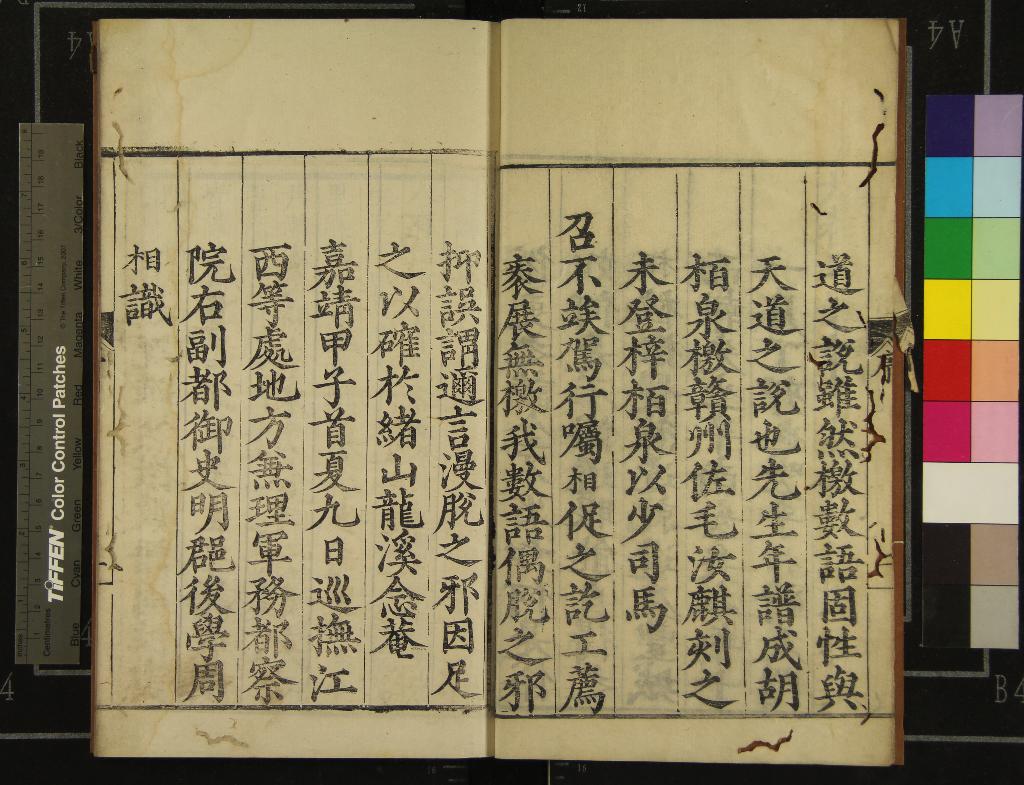 道之說雖然檄數語固性與
天道之說也先生年譜成胡
栢泉檄贛州佐毛汝麒刻之
未登梓栢泉以少司馬
召不竢駕行囑相促之訖工薦
亵展無檄我數語偶脫之邪
抑誤謂邇言漫脫之邪因足
之以確於緒山龍溪念菴
嘉靖甲子首夏九日巡撫江
西等處地方兼理軍務都察
院右副都御史明郡後學周
相識
TIFFEN Color Control Patches
© The Tiffen Company, 2007
Centimetres
Inches
Blue
Cyan
Green
Yellow
Red
Magenta
White
3/Color
Black
A4
B4